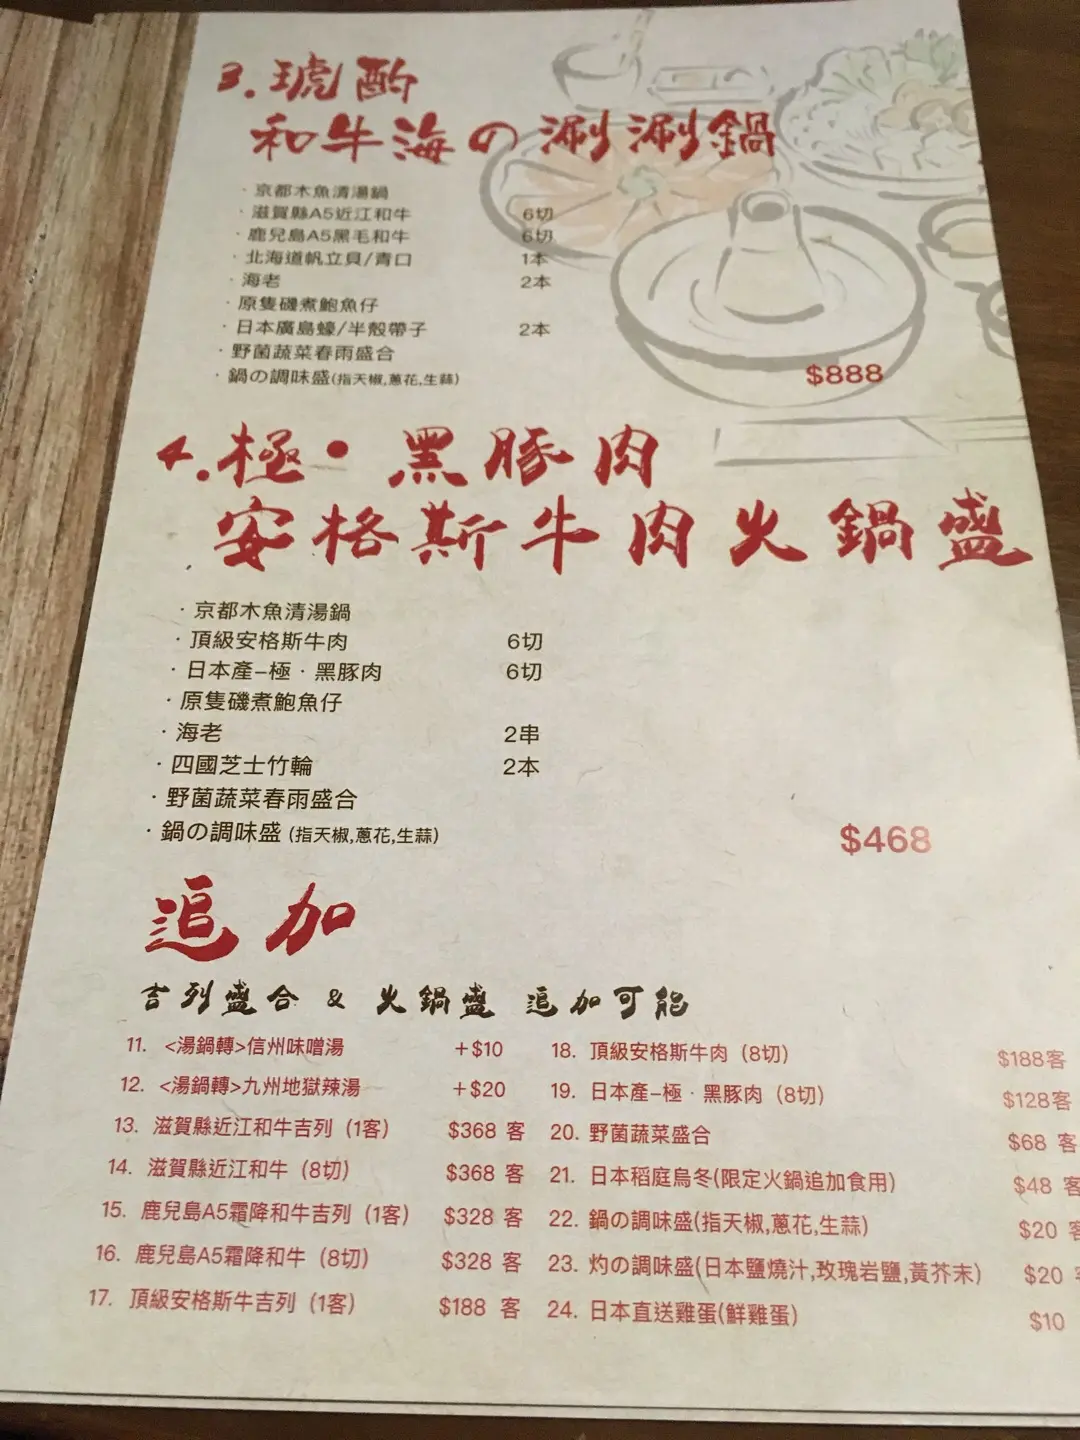 3.琥酌
和牛海の涮涮鍋
·京都木魚清湯鍋
·滋賀縣A5近江和牛 6切
·鹿兒島A5黑毛和牛 6切
·北海道帆立貝/青口 1本
·海老 2本
·原隻磯煮鮑魚仔
·日本廣島蠔/半殼帶子 2本
·野菌蔬菜春雨盛合
·鍋の調味盛(指天椒,蔥花,生蒜)
$888
4.極·黑豚肉
安格斯牛肉火鍋盛
·京都木魚清湯鍋
·頂級安格斯牛肉 6切
·日本產–極·黑豚肉 6切
·原隻磯煮鮑魚仔
·海老 2串
·四國芝士竹輪 2本
·野菌蔬菜春雨盛合
·鍋の調味盛 (指天椒,蔥花,生蒜)
$468
追加
吉列盛合 & 火鍋盛 追加可能
11. <湯鍋轉>信州味噌湯 +$10
12. <湯鍋轉>九州地獄辣湯 +$20
13. 滋賀縣近江和牛吉列 (1客) $368 客
14. 滋賀縣近江和牛 (8切) $368 客
15. 鹿兒島A5霜降和牛吉列 (1客) $328 客
16. 鹿兒島A5霜降和牛 (8切) $328 客
17. 頂級安格斯牛吉列 (1客) $188 客
18. 頂級安格斯牛肉 (8切) $188客
19. 日本產–極·黑豚肉 (8切) $128客
20. 野菌蔬菜盛合 $68 客
21. 日本稻庭烏冬(限定火鍋追加食用) $48 客
22. 鍋の調味盛(指天椒,蔥花,生蒜) $20 客
23. 灼の調味盛(日本鹽燒汁,玫瑰岩鹽,黃芥末) $20
24. 日本直送雞蛋(鮮雞蛋) $10